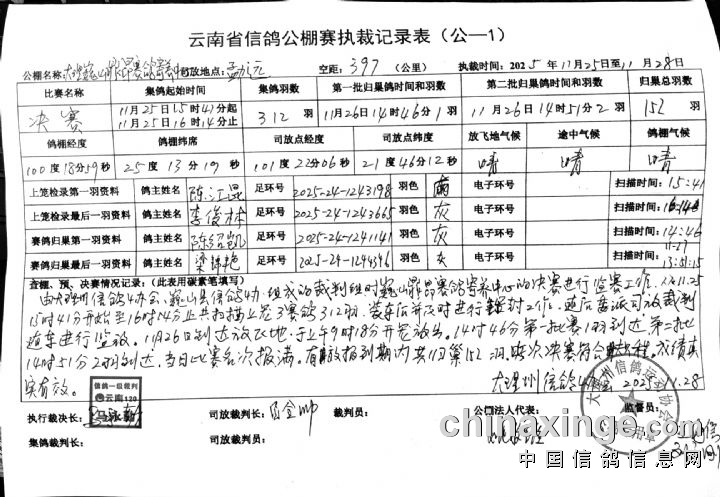 云南省信鸽公棚赛执裁记录表（公—1）
公棚名称: 司放地点: 孟远 空距: 397 （公里） 执裁时间: 2025年11月25日至11月28日
比赛名称 集鸽起始时间 集鸽羽数 第一批归巢鸽时间和羽数 第二批归巢鸽时间和羽数 归巢总羽数
决赛 11月25日15时41分起 312 羽 11月26日14时46分1羽 11月26日14时51分2羽 152 羽
11月25日16时14分止
鸽棚经度 鸽棚纬席 司放点经度 司放点纬度 放飞地气候 途中气候 鸽棚气候
100度18分59秒 25度13分19秒 101度22分06秒 21度46分12秒 晴 晴 晴
上笼检录第一羽资料 鸽主姓名 陈江混 足环号 2025-24-1243198 羽色 电子环号 扫描时间: 15:41
上笼检录最后一羽资料 鸽主姓名 李俊林 足环号 2025-24-1243665 羽色 灰 电子环号 扫描时间: 16:14
赛鸽归巢第一羽资料 鸽主姓名 陈绍凯 足环号 2025-24-1241141 羽色 灰 电子环号 扫描时间: 14:46
赛鸽归巢最后一羽资料 鸽主姓名 梁 艳 足环号 2025-24-1244396 羽色 灰 电子环号 扫描时间: 11.27 13:51:15
查棚、预、决赛情况记录:（此表用碳素笔填写）
由大理州信鸽协会、巍山县信鸽协 组成的裁判组对巍山鼎昌赛鸽寄养中心的决赛进行监赛工作，从11.25
15时41分开始至16时14分止共扫描上笼参赛鸽312羽。装车后并及时进行铅封工作，随后委派司放裁判
随车进行监放。11月26日到达放飞地于上午9时18分开笼放飞。14时46分第一批赛鸽1羽到达 第二批
14时51分2羽到达，当日比赛名次报满。有效报到期内共归巢152羽。此次决赛符合 规程。成绩真
实有效。
大理州信鸽协会 2025.11.28
信鸽一级裁判
云南120
执行裁决长: 司放裁判长: 裁判员: 公棚法人代表: 监督员:
集鸽裁判长: 司放裁判员:
chinaxinge.com
中国信鸽信息网